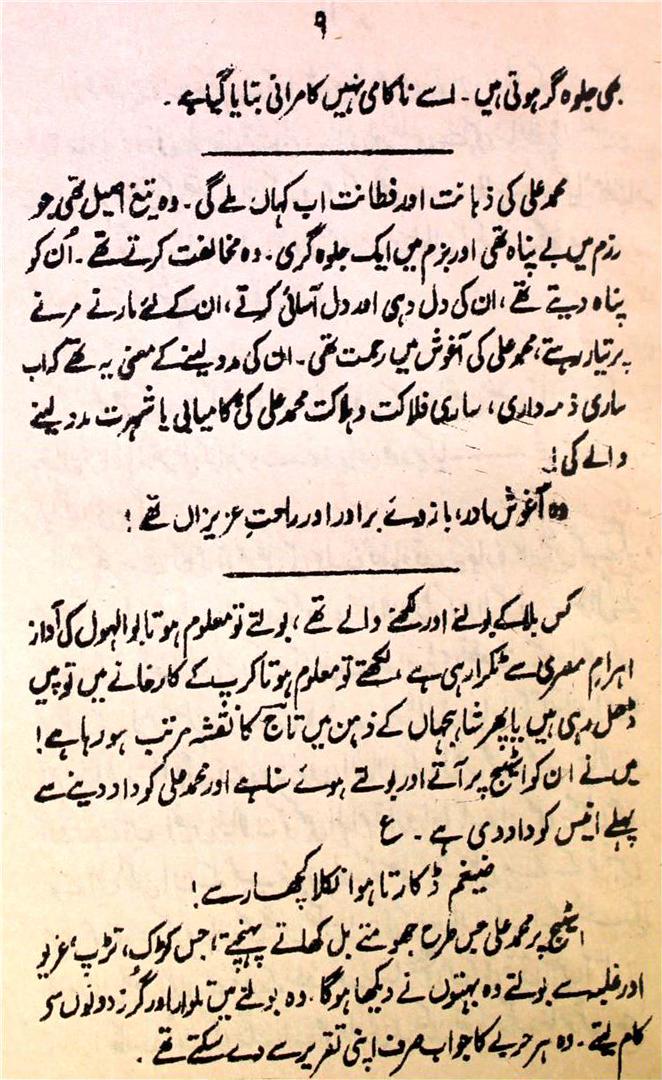 ۹
بھی جلوہ گر ہوتی ہیں۔ اسے ناکامی نہیں کامرانی بتایا گیا ہے۔
محمد علی کی ذہانت اور فطانت اب کہاں ملے گی۔ وہ تیغ اصیل تھی جو
رزم میں بے پناہ تھی اور بزم میں ایک جلوہ گری۔ وہ مخالفت کرتے تھے۔ اُن کو
پناہ دیتے تھے، ان کی دل دہی اور دل آسائی کرتے، ان کے لئے مارنے مرنے
پر تیار رہتے، محمد علی کی آغوش میں رحمت تھی۔ ان کی مدد لینے کے معنی یہ تھے کہ اب
ساری ذمہ داری، ساری فلاکت و ہلاکت محمد علی کی، کامیابی یا شہرت مدد لینے
والے کی!
وہ آغوش مادر، بازوئے برادر اور راحتِ عزیزاں تھے!
کس بلا کے بولنے اور لکھنے والے تھے، بولتے تو معلوم ہوتا بوالہول کی آواز
اہرامِ مصری سے ٹکرا رہی ہے، لکھتے تو معلوم ہوتا کرپ کے کارخانے میں توپیں
ڈھل رہی ہیں یا پھر شاہجہاں کے ذہن میں تاج کا نقشہ مرتب ہو رہا ہے!
میں نے ان کو اسٹیج پر آتے اور بولتے ہوئے سنا ہے اور محمد علی کو داد دینے سے
پہلے انیس کو داد دی ہے۔ ع
ضیغم ڈکارتا ہوا نکلا کچھار سے!
اسٹیج پر محمد علی جس طرح جھومتے بل کھاتے پہنچتے، جس کڑک، تڑپ، غریو
اور غلبہ سے بولتے وہ بہتوں نے دیکھا ہوگا۔ وہ بولنے میں تلوار اور گرز دونوں سے
کام لیتے۔ وہ ہر حربے کا جواب صرف اپنی تقریر سے دے سکتے تھے۔